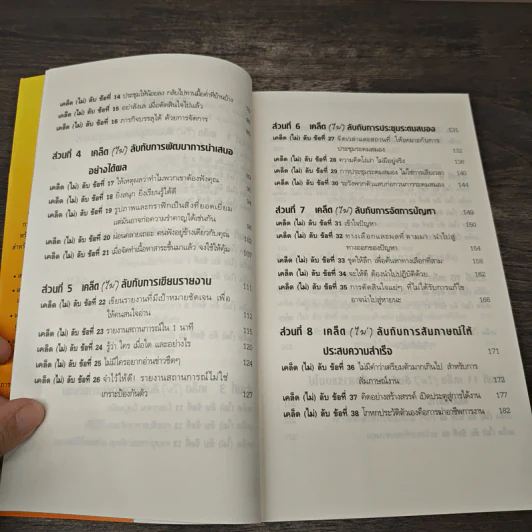 เคล็ด (ไม่) ลับ ข้อที่ 14 ประชุมให้น้อยลง กลับไปทานมื้อค่ำที่บ้านบ้าง
เคล็ด (ไม่) ลับ ข้อที่ 15 อย่าลังเล เมื่อตัดสินใจไปแล้ว
เคล็ด (ไม่) ลับ ข้อที่ 16 ภารกิจบรรลุได้ ด้วยการจัดการ
ส่วนที่ 4 เคล็ด (ไม่) ลับกับการพัฒนาการนำเสนอ
อย่างได้ผล
เคล็ด (ไม่) ลับ ข้อที่ 17 ให้เหตุผลว่าทำไมพวกเขาต้องฟังคุณ
เคล็ด (ไม่) ลับ ข้อที่ 18 ยิ่งสนุก ยิ่งเรียนรู้ได้ดี
เคล็ด (ไม่) ลับ ข้อที่ 19 รูปภาพและกราฟิกเป็นสิ่งที่ยอดเยี่ยม
แต่มันอาจก่อความรำคาญได้เช่นกัน
เคล็ด (ไม่) ลับ ข้อที่ 20 ผ่อนคลายเถอะ คนฟังอยู่ข้างเดียวกับคุณ
เคล็ด (ไม่) ลับ ข้อที่ 21 เมื่อจัดทำเนื้อหาสาระขึ้นมาแล้ว จงใช้ให้คุ้ม
ส่วนที่ 5 เคล็ด (ไม่) ลับกับการเขียนรายงาน 111
เคล็ด (ไม่) ลับ ข้อที่ 22 เขียนรายงานที่มีเป้าหมายชัดเจน เพื่อ
ให้คนสนใจอ่าน 112
เคล็ด (ไม่) ลับ ข้อที่ 23 รายงานสถานการณ์ใน 1 นาที 115
เคล็ด (ไม่) ลับ ข้อที่ 24 รู้ว่า ใคร เมื่อใด และอย่างไร
เคล็ด (ไม่) ลับ ข้อที่ 25 ไม่มีใครอยากอ่านข่าวชืดๆ 124
เคล็ด (ไม่) ลับ ข้อที่ 26 จำไว้ให้ดี! รายงานสถานการณ์ไม่ใช่
เกราะป้องกันตัว 127
ส่วนที่ 6 เคล็ด (ไม่) ลับกับการประชุมระดมสมอง 131
เคล็ด (ไม่) ลับ ข้อที่ 27 จัดเวลาและสถานที่ ให้เหมาะกับการ
ประชุมระดมสมอง
เคล็ด (ไม่) ลับ ข้อที่ 28 ความคิดโง่เง่า ไม่มีอยู่จริง 136
เคล็ด (ไม่) ลับ ข้อที่ 29 การประชุมระดมสมอง ไม่ใช่การเสียเวลา 140
เคล็ด (ไม่) ลับ ข้อที่ 30 ระวังพวกตัวแสบก่อกวนการระดมสมอง 144
ส่วนที่ 7 เคล็ด (ไม่) ลับกับการจัดการปัญหา 149
เคล็ด (ไม่) ลับ ข้อที่ 31 เข้าใจปัญหา
เคล็ด (ไม่) ลับ ข้อที่ 32 ทางเลือกและผลที่ตามมา นำไปสู่
ทางออกของปัญหา 154
เคล็ด (ไม่) ลับ ข้อที่ 33 ขุดให้ลึก เพื่อค้นหาทางเลือกที่ตามมา 158
เคล็ด (ไม่) ลับ ข้อที่ 34 จะให้ดี ต้องนำไปปฏิบัติด้วย 162
เคล็ด (ไม่) ลับ ข้อที่ 35 การตัดสินใจแย่ๆ ที่ไม่ได้รับการแก้ไข
อาจนำไปสู่หายนะ 166
ส่วนที่ 8 เคล็ด (ไม่) ลับกับการสัมภาษณ์ให้
ประสบความสำเร็จ 171
เคล็ด (ไม่) ลับ ข้อที่ 36 ไม่มีคำว่าเตรียมตัวมากเกินไป สำหรับการ
สัมภาษณ์งาน 172
เคล็ด (ไม่) ลับ ข้อที่ 37 คิดอย่างสร้างสรรค์ เปิดประตูสู่การได้งาน 177
เคล็ด (ไม่) ลับ ข้อที่ 38 โกหกประวัติตัวเองคือการฆ่าอาชีพการงาน 182